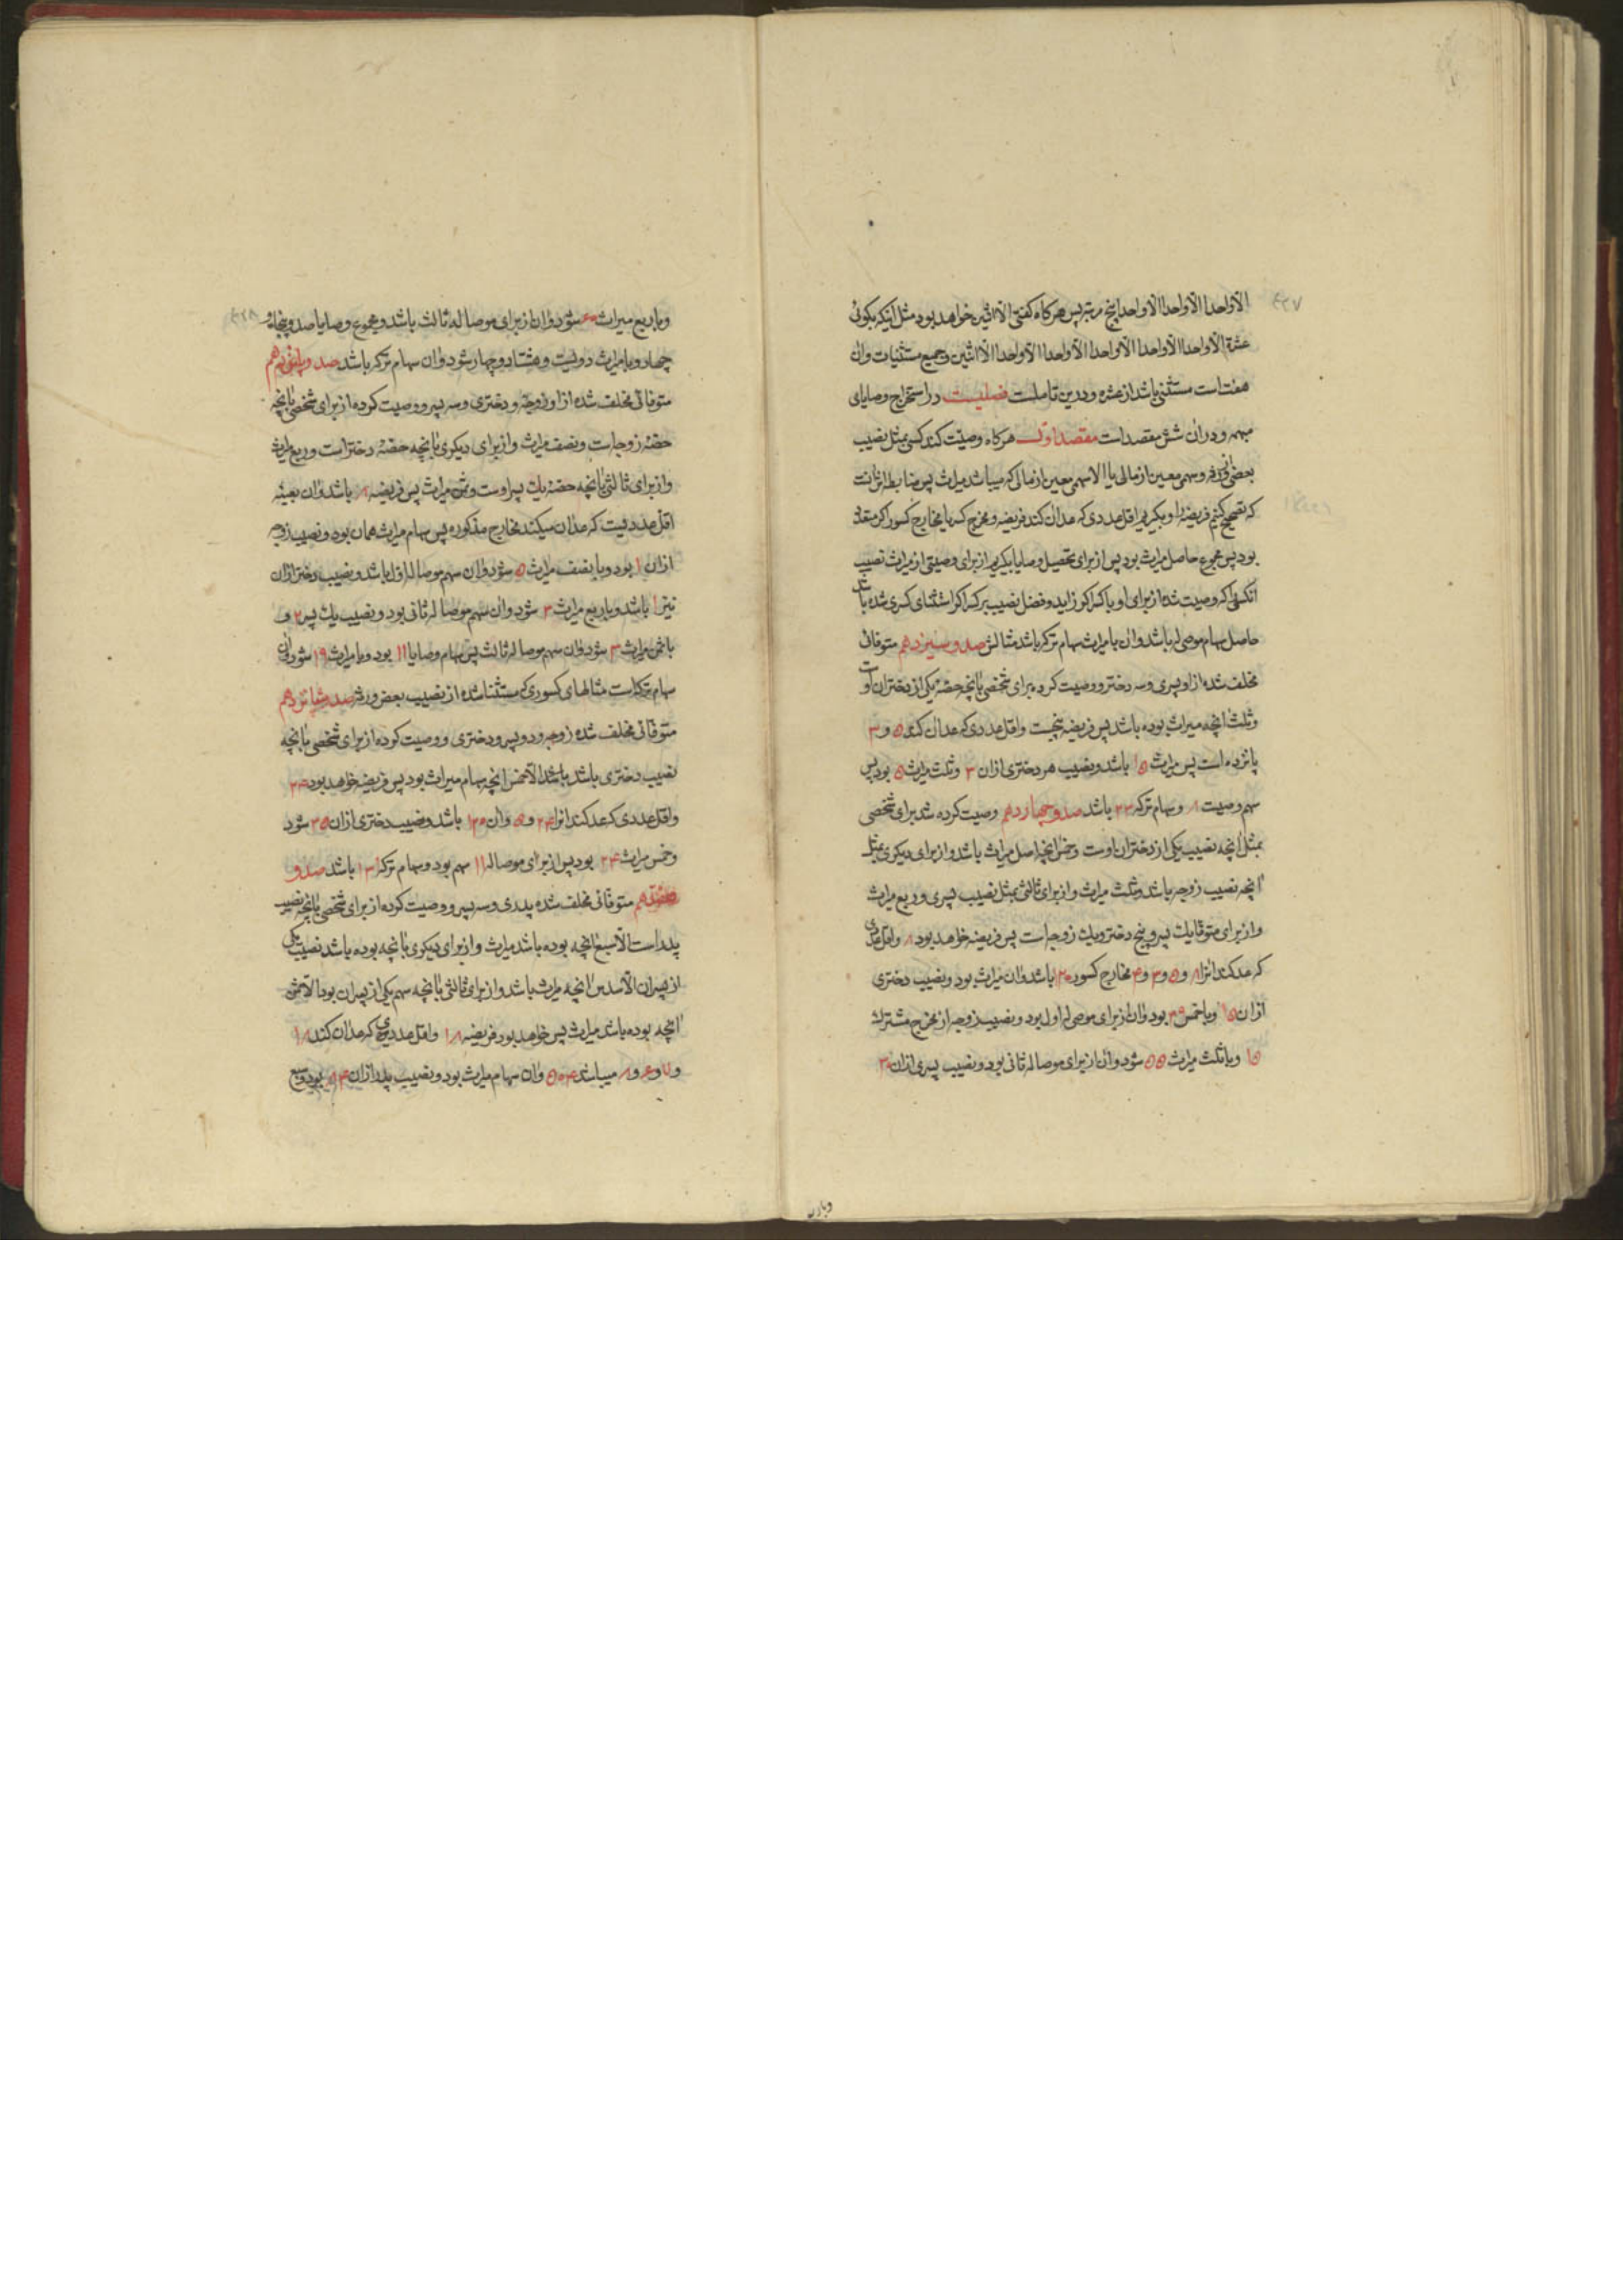 ۴۲۷
الاواحدا الاواحدا الاواحدا پنج مرتبه پس هرکاه کفتی الا اثنین خواهد بود مثل اینکه بکوئی
عشرة الاواحدا الاواحدا الاواحدا الاواحدا الاواحدا الا اثنین و جمیع مستثنیات وان
هفت است مستثنی باشد از عشره و درین تاملست فصلیست در استخراج وصایای
مبهمه و دران شش مقصد است مقصد اول هرکاه وصیت کند کسی بمثل نصیب
بعضی ورثه و سهمی معین از مالی یا الا سهمی معین از مالی که میباشد میراث پس ضابطه اش انست
که تصحیح کنیم فریضه او بکیریم اقل عددی که عدان کند فریضه و مخرج کسر یا مخارج کسور اکر متعدد
بود پس مجموع حاصل میراث بود پس از برای تحصیل وصایا بکیریم از برای وصیتی از میراث نصیب
انکسی که وصیت شده از برای او با کسر اکر زاید و فضل نصیب بر کسر اکر استثنای کسری شده باشد
حاصل سهام موصی له باشد وان با میراث سهام ترکه باشد مثالش صد و سیزدهم متوفائی
مخلف شده از او پسری و سه دختر و وصیت کرده برای شخصی بانچه حصه یکی از دختران اوست
و ثلث انچه میراث بوده باشد پس فریضه پنجست و اقل عددی که عدان کند ۵ و ۳
پانزده است پس میراث ۱۵ باشد و نصیب هر دختری ازان ۳ و ثلث میراث ۵ بود پس
سهم وصیت ۸ و سهام ترکه ۲۳ باشد صد و چهاردهم وصیت کرده شد برای شخصی
بمثل انچه نصیب یکی از دختران اوست و خمس انچه اصل میراث باشد و از برای دیکری بمثل
انچه نصیب زوجه باشد و ثلث میراث و از برای ثالثی بمثل نصیب پسری و ربع میراث
و از برای متوفا یک پسر و پنج دختر و یک زوجه است پس فریضه خواهد بود ۸ و اقل عددی
که عد کند انرا ۸ و ۵ و ۳ و ۴ مخارج کسور ۱۲۰ باشد وان میراث بود و نصیب دختری
ازان ۱۵ و با خمس ۳۹ بود وان از برای موصی له اول بود و نصیب زوجه از مخرج مشترک
۱۵ و با ثلث میراث ۵۵ شود وان از برای موصا له ثانی بود و نصیب پسری ازان ۳۰
۴۲۸
و با ربع میراث ۶۰ شود وان از برای موصا له ثالث باشد و مجموع وصایا صد و پنجاه و
چهار و با میراث دویست و هفتاد و چهار شود وان سهام ترکه باشد صد و پانزدهم
متوفائی مخلف شده از او زوجه و دختری و سه پسر و وصیت کرده از برای شخصی بانچه
حصه زوجه است و نصف میراث و از برای دیکری بانچه حصه دختر است و ربع میراث
و از برای ثالثی بانچه حصه یک پسر اوست و ثمن میراث پس فریضه ۸ باشد وان بعینه
اقل عددیست که عدان میکند مخارج مذکوره پس سهام میراث همان بود و نصیب زوجه
ازان ۱ بود و با نصف میراث ۵ شود وان سهم موصا له اول باشد و نصیب دختر ازان
نیز ۱ باشد و با ربع میراث ۳ شود وان سهم موصا له ثانی بود و نصیب یک پسر ۲ و
با ثمن میراث ۳ شود وان سهم موصا له ثالث پس سهام وصایا ۱۱ بود و با میراث ۱۹ شود وان
سهام ترکه است مثالهای کسوری که مستثنا شده از نصیب بعض ورثه صد و شانزدهم
متوفائی مخلف شده زوجه و دو پسر و دختری و وصیت کرده از برای شخصی بانچه
نصیب دختری باشد باشد الا خمس انچه سهام میراث بود پس فریضه خواهد بود ۲۴
و اقل عددی که عد کند انرا ۲۴ و ۵ وان ۱۲۰ باشد و نصیب دختری ازان ۳۵ شود
و خمس میراث ۲۴ بود پس از برای موصا له ۱۱ سهم بود و سهام ترکه ۱۳۱ باشد صد و
هفدهم متوفائی مخلف شده پدری و سه پسر و وصیت کرده از برای شخصی بانچه نصیب
پدر است الا سبع انچه بوده باشد میراث و از برای دیکری بانچه بوده باشد نصیب یکی
از پسران الا سدس انچه میراث باشد و از برای ثالثی بانچه سهم یکی از پسران بود الا ثمن
انچه بوده باشد میراث پس خواهد بود فریضه ۱۸ و اقل عددیی که عدان کند ۱۸
و ۷ و ۶ و ۸ میباشد ۵۰۴ وان سهام میراث بود و نصیب پدر ازان ۸۴ بود و سبع